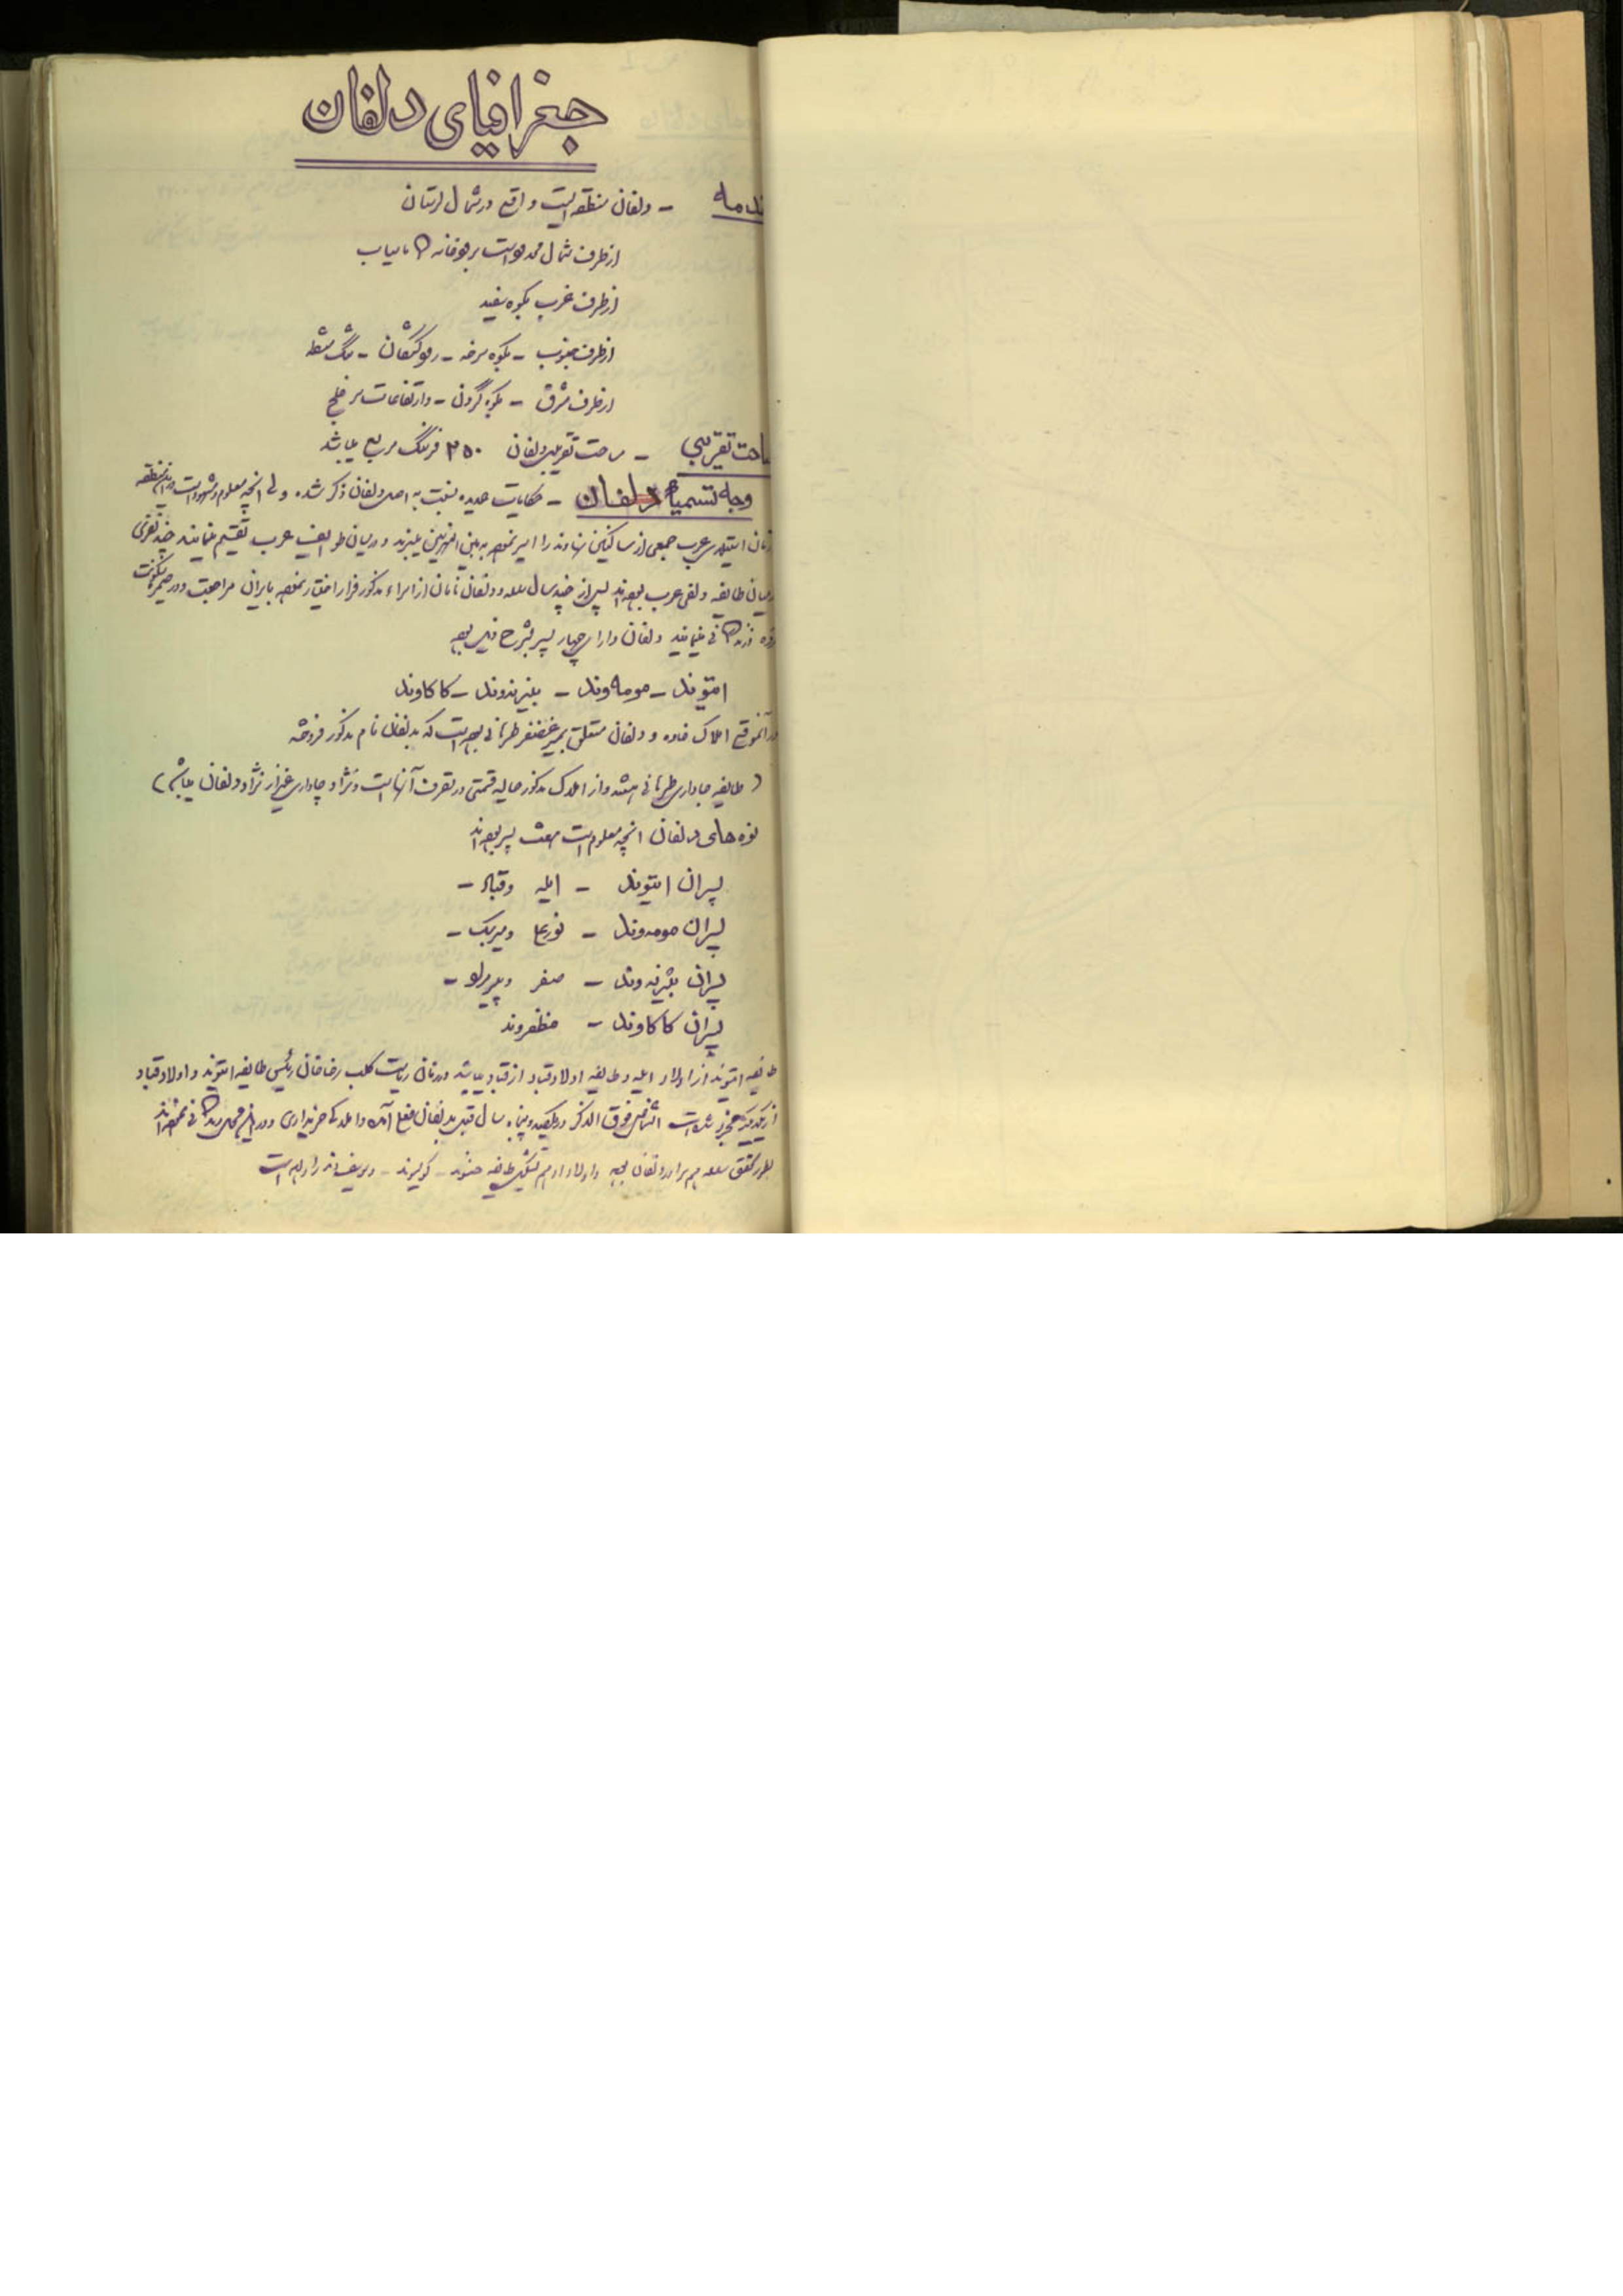 جغرافیای دلفان
دلفان منطقه ایست واقع در شمال لرستان
از طرف شمال محدود است برودخانه گاماسیاب
از طرف غرب بکوه سفید
از طرف جنوب - بکوه سرخه - رودکشکان -
از طرف مشرق - بکوه گردن - و ارتفاعات
تقریبی - مساحت تقریبی دلفان ۲۵۰ فرسنگ مربع میباشد
وجه تسمیه دلفان - حکایات عدیده نسبت به اصل دلفان ذکر شده ولی آنچه معلوم و مشهود است
عرب جمعی از ساکنین نهاوند را اسیر نموده به بین النهرین میبرند و در میان طوایف عرب تقسیم مینمایند چند نفری
طایفه دلفی عرب بوده اند پس از چند سال دلفان نامان از امراء مذکور فرار اختیار نموده بایران مراجعت و در
مینمایند دلفان دارای چهار پسر بشرح ذیل بوده
ایتوند - مومه وند - بیژنه وند - کاکاوند
در آنموقع املاک خاوه و دلفان متعلق بمیر غضنفر طرهانی بوده است که بدلفان نام مذکور فروخته
( طایفه طرهانی هستند و از املاک مذکور حالیه قسمتی در تصرف آنها است و نژاد غیر از نژاد دلفان میباشد )
نوه های دلفان آنچه معلوم است هفت پسر بوده اند
پسران ایتوند - ایله و قباد -
پسران مومه وند - نورعلی و میربک -
پسران بیژنه وند - صفر و
پسران کاکاوند - مظفروند
طایفه ایتوند از اولاد ایله و طایفه اولاد قباد از قباد میباشد در زمان ریاست کلب رضا خان رئیس طایفه ایتوند و اولاد قباد
از یکدیگر مجزی شده است اشخاص فوق الذکر در یکصد و پنجاه سال قبل بدلفان آمده و املاک خریداری و در نموده اند
بطور تحقق هم برادر دلفان بوده و اولاد او هم تشکیل طایفه - - است